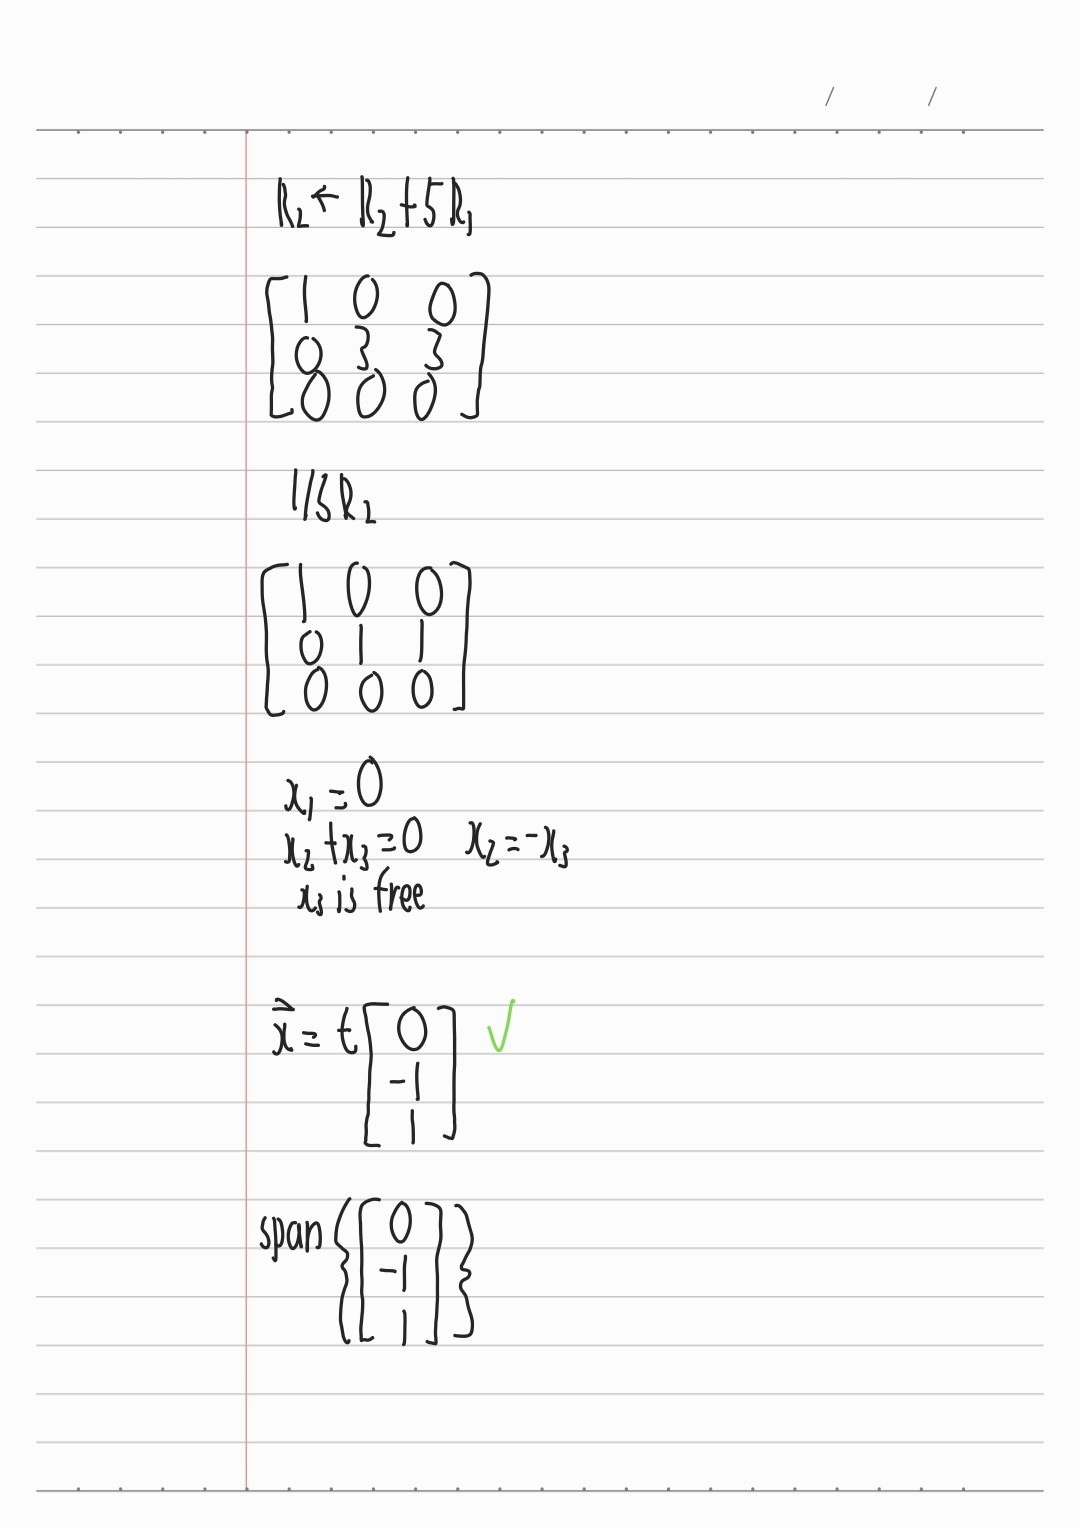 / /
R₂ ← R₂ + 5R₁
[ 1 0 0
0 3 3
0 0 0 ]
1/3 R₂
[ 1 0 0
0 1 1
0 0 0 ]
x₁ = 0
x₂ + x₃ = 0 x₂ = -x₃
x₃ is free
x⃗ = t [ 0
-1
1 ] ✓
span { [ 0
-1
1 ] }